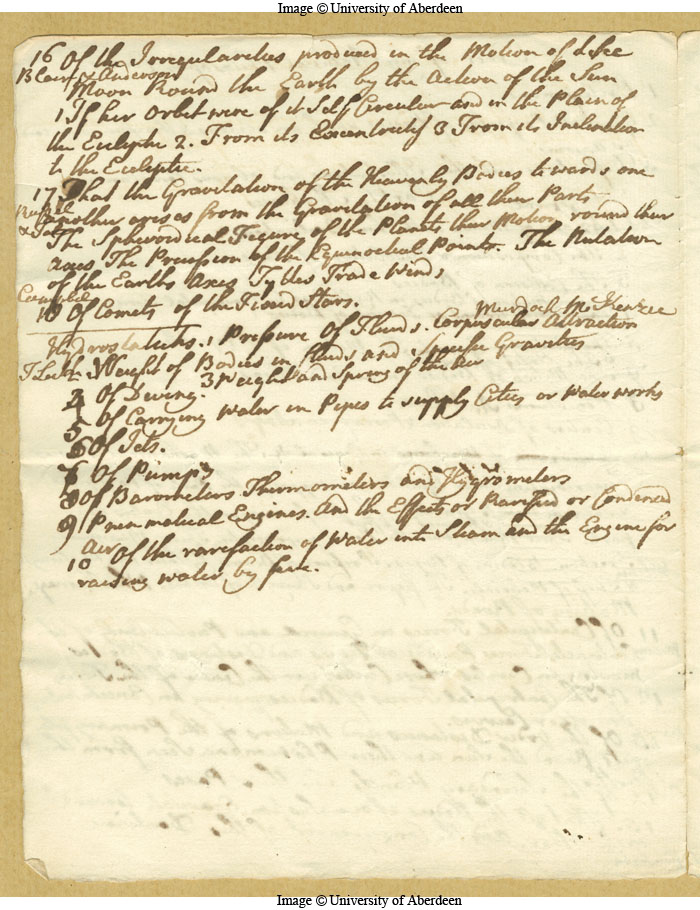 Image © University of Aberdeen
16 Of the Irregularities produced in the Motion of the
Blair & Anderson
Moon Round the Earth by the Action of the Sun
1 If her Orbit were of it Self Circular and in the Plain of
the Ecliptic 2. From its Excentricity 3 From its Inclination
to the Ecliptic.
17 That the Gravitation of the Heavenly Bodies towards one
another arises from the Gravitation of all their Parts
The Spheroidical Figure of the Planets their Motion round their
axes The Precession of the Equinoctial Points. The Nutation
of the Earths Axes Tydes Trade Winds
Campbel
18 Of Comets of the Fixed Stars.
Murdoch McKenzie
Hydrostaticks. 1 Pressure of Fluids. Corpuscular Attraction
2 Weight of Bodies in fluids and Specific Gravities
3 Weight and Spring of the Air
4 Of Diving.
5 Of Carrying Water in Pipes to supply Cities or Water works
6 Of Jets.
7 Of Pumps
8 Of Barometers Thermometers and Hygrometers
9 Pneumatical Engines. And the Effects of Rarified or Condensed
Air
10 Of the rarefaction of Water into Steam and the Engine for
raising water by fire.
Image © University of Aberdeen